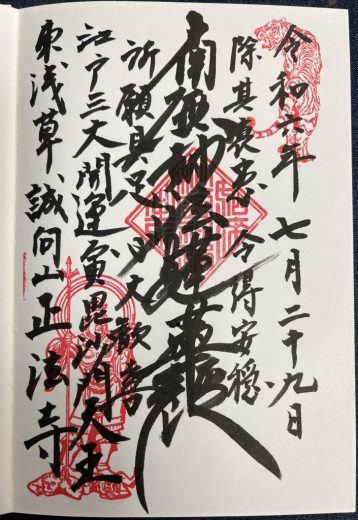 令和六年 七月二十九日
除其衰患 令得安穏
南無妙法蓮華経
所願具足 心大歓喜
江戸三大開運寅毘沙門天王
東浅草 誠向山正法寺